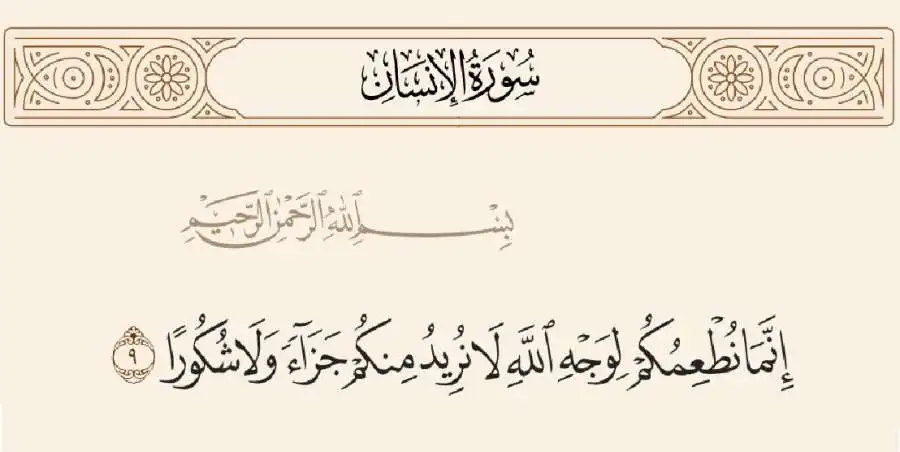 سُورَةُ الإِنسَانِ
بِسْمِ اللَّهِ الرَّحْمَٰنِ الرَّحِيمِ
إِنَّمَا نُطْعِمُكُمْ لِوَجْهِ ٱللَّهِ لَا نُرِيدُ مِنكُمْ جَزَآءً وَلَا شُكُورًا ٩